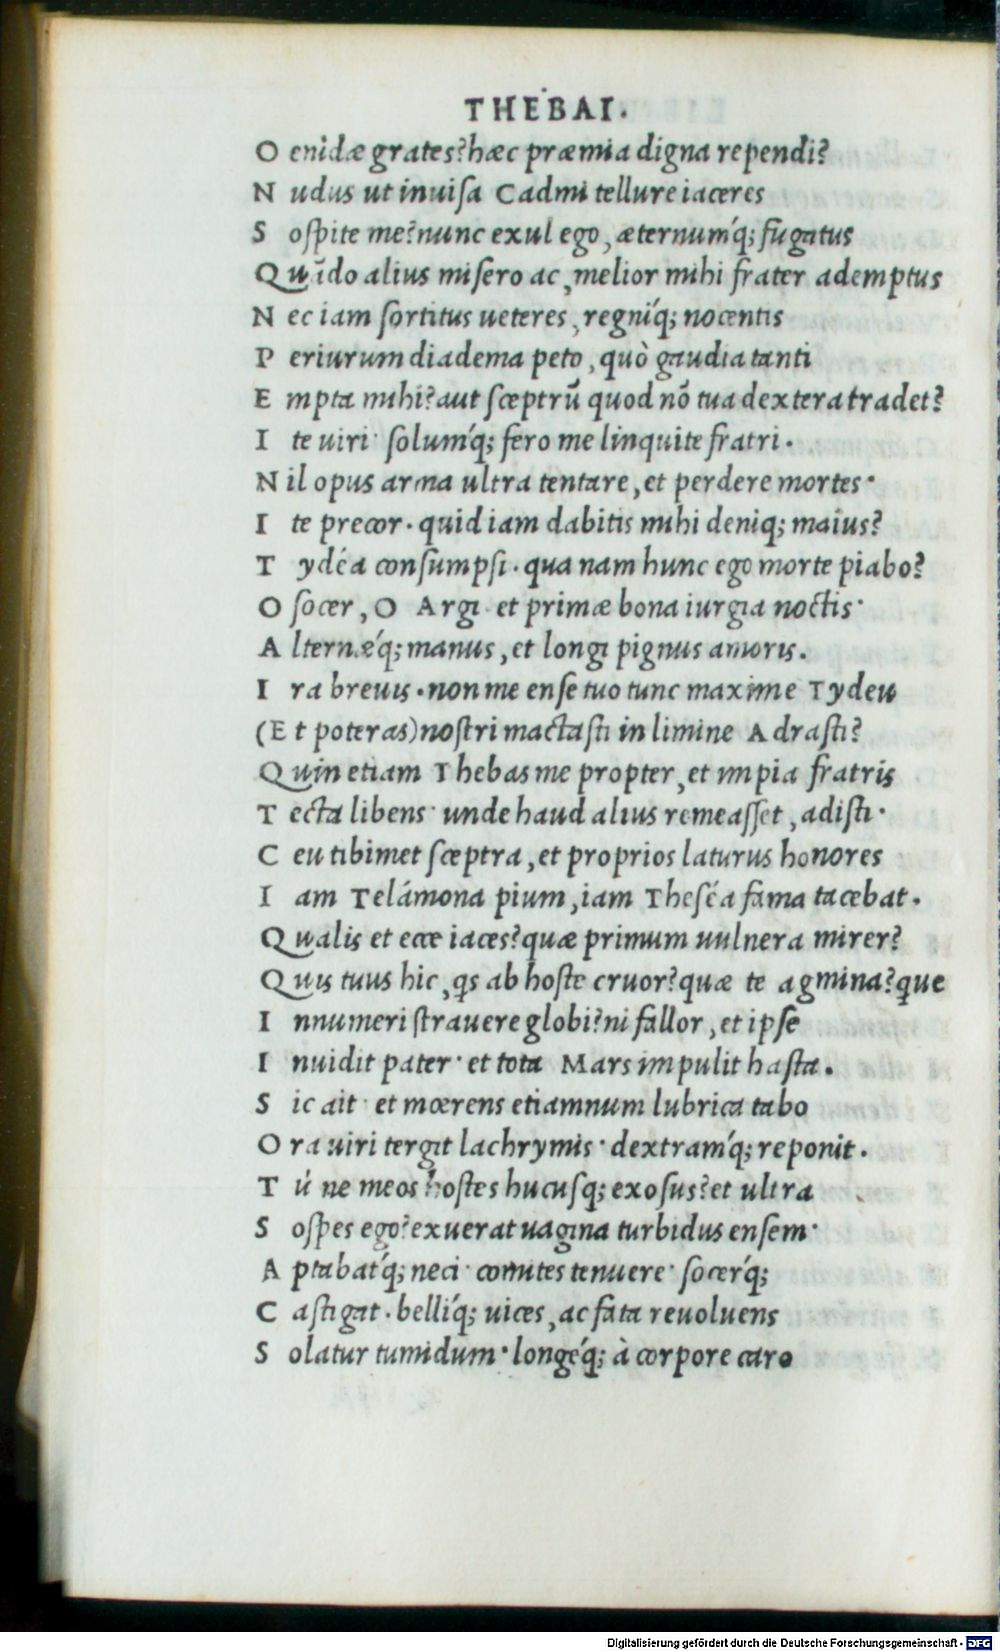 THEBAI.
O enidæ grates? hæc præmia digna rependi?
N udus ut inuisa Cadmi tellure iaceres
S ospite me? nunc exul ego, æternumq́; fugatus
Quãdo alius misero ac, melior mihi frater ademptus
N ec iam sortitus ueteres, regniq́; nocentis
P eriurum diadema peto, quò gaudia tanti
E mpta mihi? aut sceptrũ quod nõ tua dextera tradet?
I te uiri· solumq́; fero me linquite fratri.
N il opus arma ultra tentare, et perdere mortes·
I te precor. quid iam dabitis mihi deniq; maius?
T ydéa consumpsi. qua nam hunc ego morte piabo?
O socer, O Argi· et primæ bona iurgia noctis·
A lternæq́; manus, et longi pignus amoris.
I ra breuis. non me ense tuo tunc maxime Tydeu
(E t poteras) nostri mactasti in limine Adrasti?
Quin etiam Thebas me propter, et impia fratris
T ecta libens· unde haud alius remeasset, adisti·
C eu tibimet sceptra, et proprios laturus honores
I am Telámona pium, iam Theséa fama tacebat.
Qualis et ecce iaces? quæ primum uulnera mirer?
Quis tuus hic, q̃s ab hoste cruor? quæ te agmina? que
I nnumeri strauere globi? ni fallor, et ipse
I nuidit pater· et tota Mars impulit hasta.
S ic ait· et mœrens etiamnum lubrica tabo
O ra uiri tergit lachrymis· dextramq́; reponit.
T ú ne meos hostes hucusq; exosus? et ultra
S ospes ego? exuerat uagina turbidus ensem·
A ptabatq́; neci· comites tenuere· socerq́;
C astigat. belliq́; uices, ac fata reuoluens
S olatur tumidum· longeq́; à corpore caro
Digitalisierung gefördert durch die Deutsche Forschungsgemeinschaft - DFG